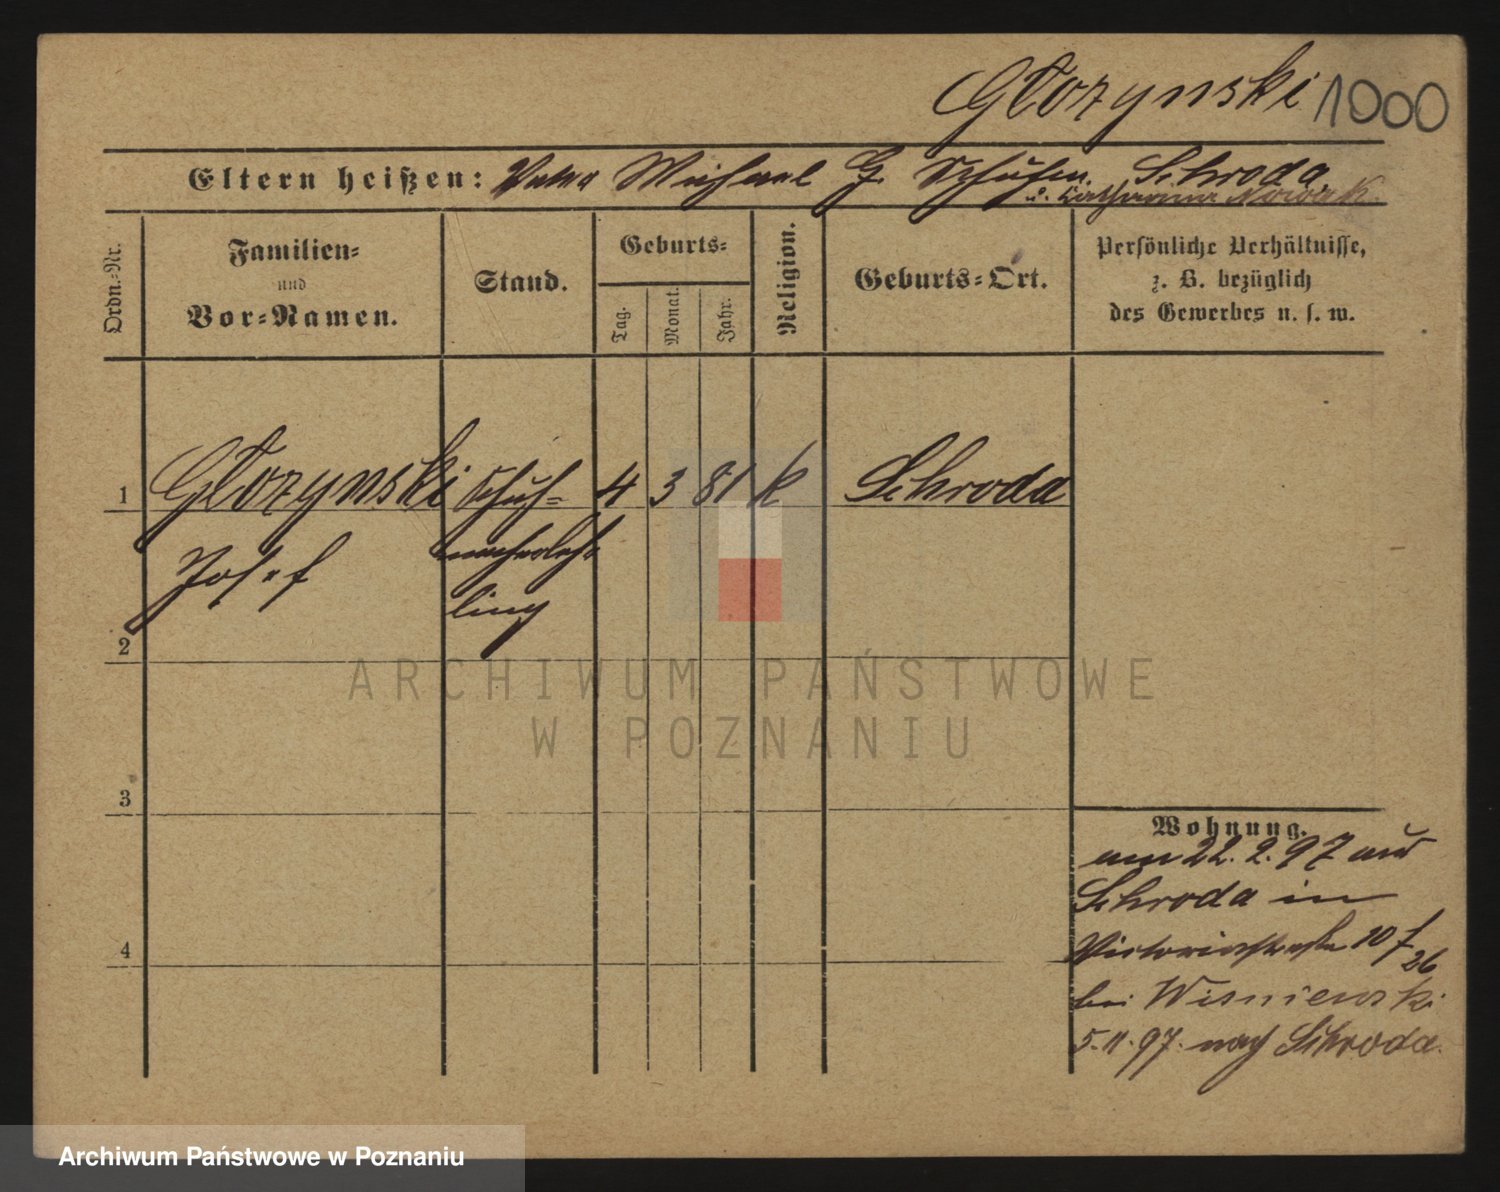 Głozynski 1000
Eltern heißen: Vater Michael G. Schuhm. Schroda
u. Katharina Nowak.
Ordn.-Nr.
Familien-
und
Vor-Namen.
Stand.
Geburts-
Tag.
Monat.
Jahr.
Religion.
Geburts-Ort.
Persönliche Verhältnisse,
z. B. bezüglich
des Gewerbes u. s. w.
1 Głozynski Schuh- 4 3 81 k Schroda
Josef macherlehr
ling
2
3
4
Wohnung.
am 22. 2. 97 aus
Schroda in
Victoriastraße 10
26
bei Wisniewski
5. 11. 97. nach Schroda.
ARCHIWUM PAŃSTWOWE
W POZNANIU
Archiwum Państwowe w Poznaniu